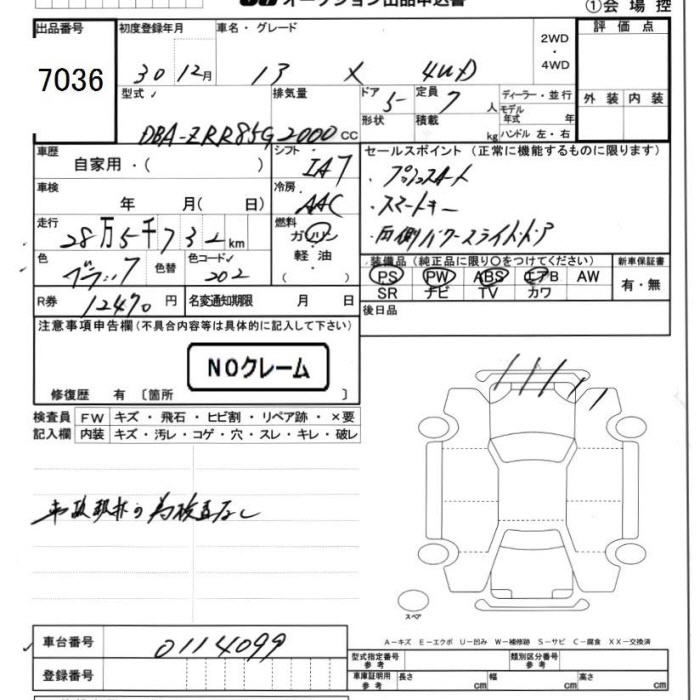 オークション出品申込書
①会場控
出品番号 初度登録年月 車名・グレード 2WD・4WD 評価点
7036 30 12月 13 X 4WD
型式 排気量 ドア 5 定員 7人 ディーラー・並行 外装 内装
モデル年式 年
DBA-ZRR85G 2000cc 形状 積載 kg ハンドル 左・右
車歴 シフト セールスポイント (正常に機能するものに限ります)
自家用・( ) IA7
・プッシュスタート
車検 冷房
年 月( 日) AAC ・スマートキー
走行 燃料
28万5千732km ガソリン ・両側パワースライドドア
色 色替 色コード 軽油 装備品(純正品に限り○をつけてください) 新車保証書
ブラック 202 ( ) PS PW ABS エアB AW 有・無
SR ナビ TV カワ
R券 12470円 名変通知期限 月 日 後日品
注意事項申告欄(不具合内容等は具体的に記入して下さい)
NOクレーム
修復歴 有 〔箇所 〕
検査員 FW キズ・飛石・ヒビ割・リペア跡・×要
記入欄 内装 キズ・汚レ・コゲ・穴・スレ・キレ・破レ
の為検査なし
スペア
A-キズ E-エクボ U-凹み W-補修跡 S-サビ C-腐食 XX-交換済
車台番号 0114099 型式指定番号 参考 類別区分番号 参考
登録番号 車庫証明用 参考 長さ cm 幅 cm 高さ cm